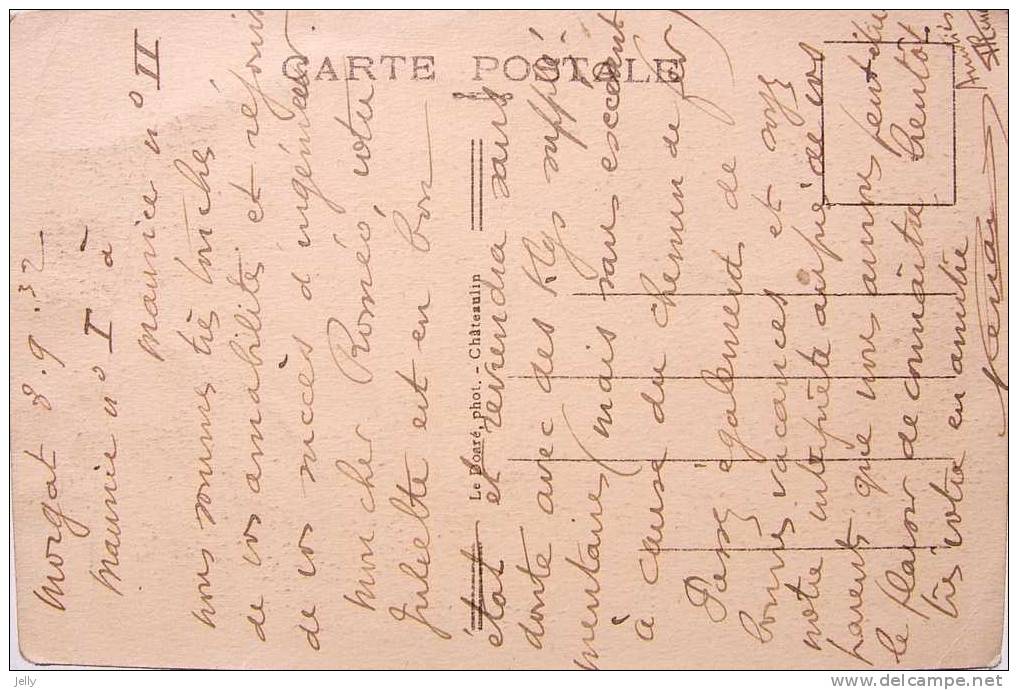 CARTE POSTALE
Le Doaré, phot. - Châteaulin
Morgat 8.9.32
Maurice no I à
Maurice no II
nous sommes très touchés
de vos amabilités et réjouis
de vos succès d'ingénieur.
Mon cher Roméo votre
Juliette est en bon
état et reviendra sans
doute avec des Kgs supplé-
mentaires (mais sans excédent
à cause du chemin de fer)
Passez également de
bonnes vacances et soyez
notre interprète auprès de vos
parents que nous aurons peut être
le plaisir de connaître bientôt
très votre en amitié
Jelly
delcampe.net